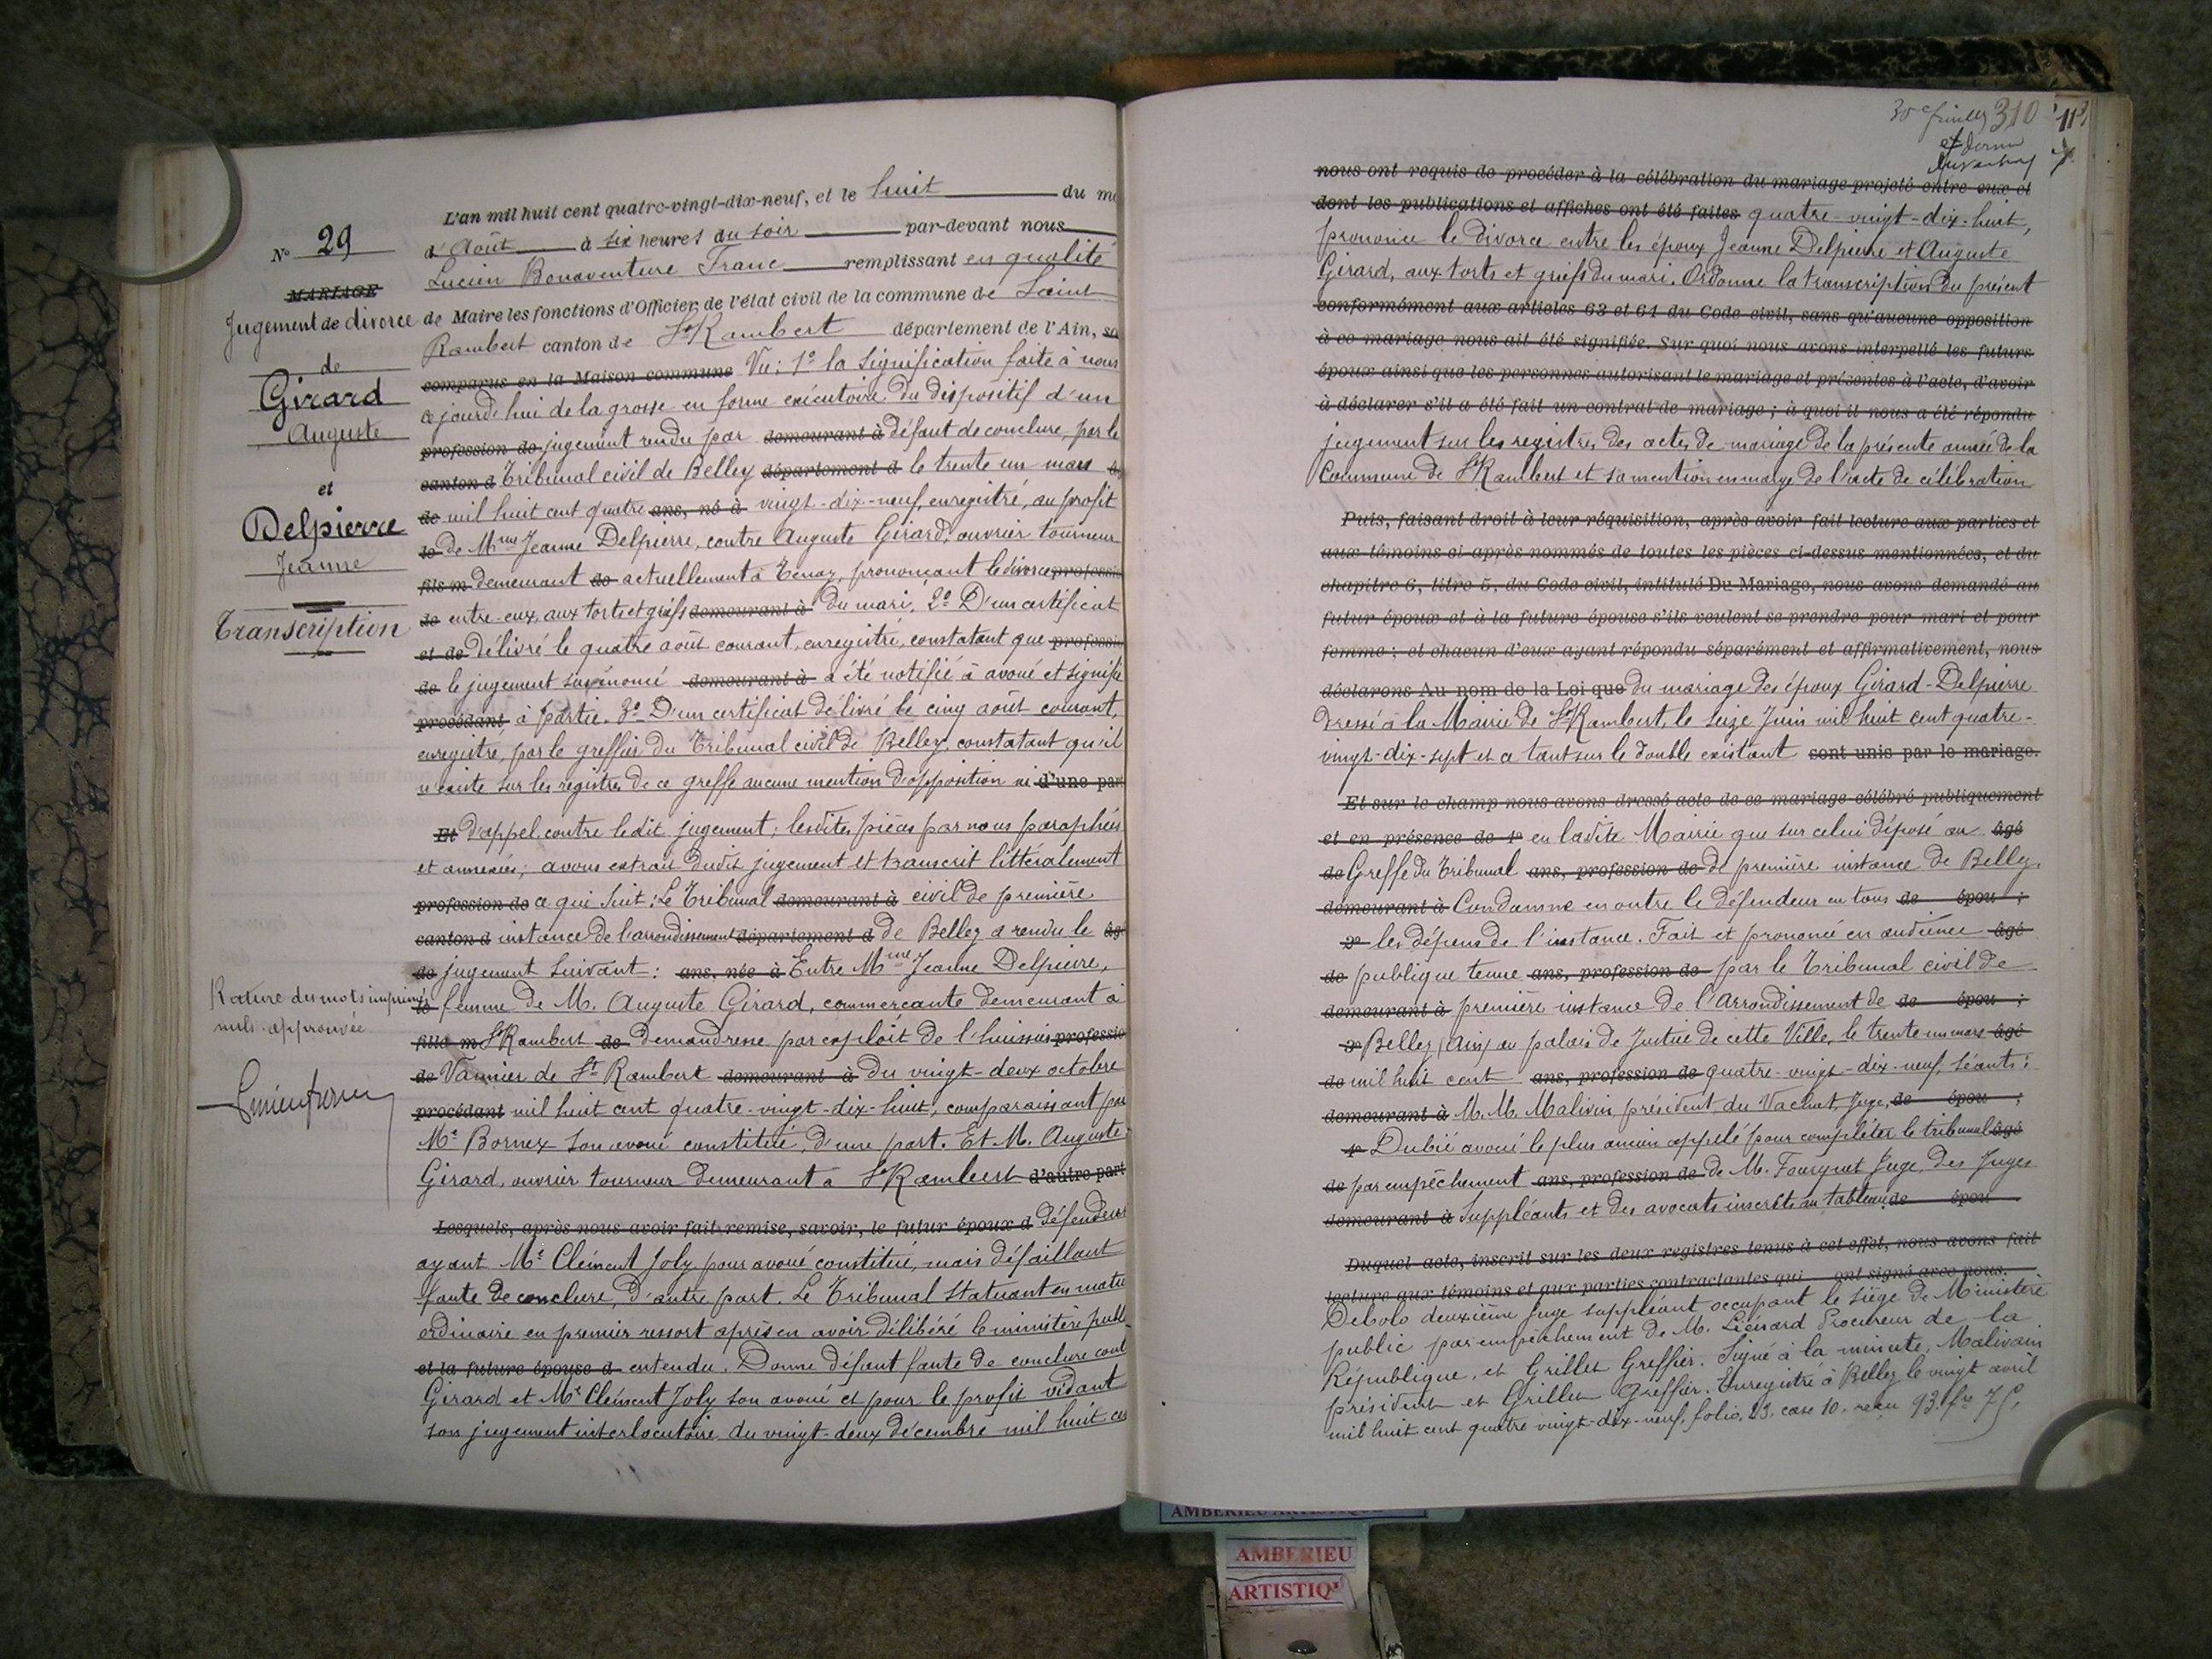 N° 29
MARIAGE
Jugement de divorce
de
Girard
Auguste
et
Delpierre
Jeanne
Transcription
Rature des mots imprimés
nuls approuvée
L'an mil huit cent quatre-vingt-dix-neuf, et le huit du mo
d'Août à six heures du soir par-devant nous
Lucien Bonaventure Franc remplissant en qualité
de Maire les fonctions d'Officier de l'état civil de la commune de Saint
Rambert canton de St Rambert département de l'Ain, so
comparus en la Maison commune Vu : 1° la signification faite à nous
ce jourd'hui de la grosse en forme exécutoire du dispositif d'un
profession de jugement rendu par demeurant à défaut de conclure, par le
canton d Tribunal civil de Belley département d le trente un mars
de mil huit cent quatre ans, né à vingt-dix-neuf, enregistré, au profit
le de Mme Jeanne Delpierre, contre Auguste Girard, ouvrier tourneur
fils m demeurant de actuellement à Tenay, prononçant le divorce professio
de entre eux, aux torts et griefs demeurant à du mari. 2° D'un certificat
et de délivré le quatre août courant, enregistré, constatant que professio
de le jugement susénoncé demeurant à a été notifié à avoué et signifié
procédant à partie. 3° D'un certificat délivré le cinq août courant,
enregistré, par le greffier du Tribunal civil de Belley, constatant qu'il
n'existe sur les registres de ce greffe aucune mention d'opposition ni d'une par
Et d'appel contre le dit jugement ; lesdites pièces par nous paraphées
et annexées ; avons extrait dudit jugement et transcrit littéralement
profession de ce qui suit : Le Tribunal demeurant à civil de première
canton d instance de l'arrondissement département d de Belley a rendu le âg
de jugement suivant : ans, née à Entre Mme Jeanne Delpierre,
le femme de M. Auguste Girard, commerçante demeurant à
fille m St Rambert de demanderesse par exploit de l'huissier professio
de Vannier de St Rambert demeurant à du vingt-deux octobre
procédant mil huit cent quatre-vingt-dix-huit, comparaissant par
Me Bornex son avoué constitué, d'une part. Et M. Auguste
Girard, ouvrier tourneur demeurant à St Rambert d'autre part
Lesquels, après nous avoir fait remise, savoir, le futur époux d défendeur
ayant Me Clément Joly pour avoué constitué, mais défaillant
faute de conclure, d'autre part. Le Tribunal statuant en matiè
ordinaire en premier ressort après en avoir délibéré le ministère publ
et la future épouse d entendu. Donne défaut faute de conclure cont
Girard et Me Clément Joly son avoué et pour le profit vidant
son jugement interlocutoire du vingt-deux décembre mil huit ce
310
nous ont requis de procéder à la célébration du mariage projeté entre eux et
dont les publications et affiches ont été faites quatre-vingt-dix-huit,
prononce le divorce entre les époux Jeanne Delpierre et Auguste
Girard, aux torts et griefs du mari. Ordonne la transcription du présent
conformément aux articles 63 et 64 du Code civil, sans qu'aucune opposition
à ce mariage nous ait été signifiée. Sur quoi nous avons interpellé les futurs
époux ainsi que les personnes autorisant le mariage et présentes à l'acte, d'avoir
à déclarer s'il a été fait un contrat de mariage ; à quoi il nous a été répondu
jugement sur les registres des actes de mariage de la présente année de la
Commune de St Rambert et sa mention en marge de l'acte de célébration
Puis, faisant droit à leur réquisition, après avoir fait lecture aux parties et
aux témoins ci-après nommés de toutes les pièces ci-dessus mentionnées, et du
chapitre 6, titre 5, du Code civil, intitulé Du Mariage, nous avons demandé au
futur époux et à la future épouse s'ils veulent se prendre pour mari et pour
femme ; et chacun d'eux ayant répondu séparément et affirmativement, nous
déclarons Au nom de la Loi que du mariage des époux Girard-Delpierre
dressé à la Mairie de St Rambert, le seize Juin mil huit cent quatre-
vingt-dix-sept et ce tant sur le double existant sont unis par le mariage.
Et sur le champ nous avons dressé acte de ce mariage célébré publiquement
et en présence de 1° en ladite Mairie que sur celui déposé au âgé
de Greffe du Tribunal ans, profession de de première instance de Belley.
demeurant à Condamne en outre le défendeur en tous de épou ;
2° les dépens de l'instance. Fait et prononcé en audience âgé
de publique tenue ans, profession de par le Tribunal civil de
demeurant à première instance de l'Arrondissement de de épou ;
3° Belley (Ain) au palais de Justice de cette Ville, le trente un mars âgé
de mil huit cent ans, profession de quatre-vingt-dix-neuf, séants :
demeurant à M.M. Malivin président, du Vachat, Juge, de épou ;
4° Dubié avoué le plus ancien appelé pour compléter le tribunal âgé
de par empêchement ans, profession de de M. Fourquet Juge, des Juges
demeurant à Suppléants et des avocats inscrits au tableau, de épou
Duquel acte, inscrit sur les deux registres tenus à cet effet, nous avons fait
lecture aux témoins et aux parties contractantes qui ont signé avec nous.
Debolo deuxième Juge suppléant occupant le siège de Ministère
public par empêchement de M. Liénard Procureur de la
République, et Grillet Greffier. Signé à la minute, Malivain
président et Grillet Greffier. Enregistré à Belley le vingt avril
mil huit cent quatre vingt-dix-neuf, folio 23, case 10, reçu 93 frs 75,
AMBERIEU
ARTISTIQ